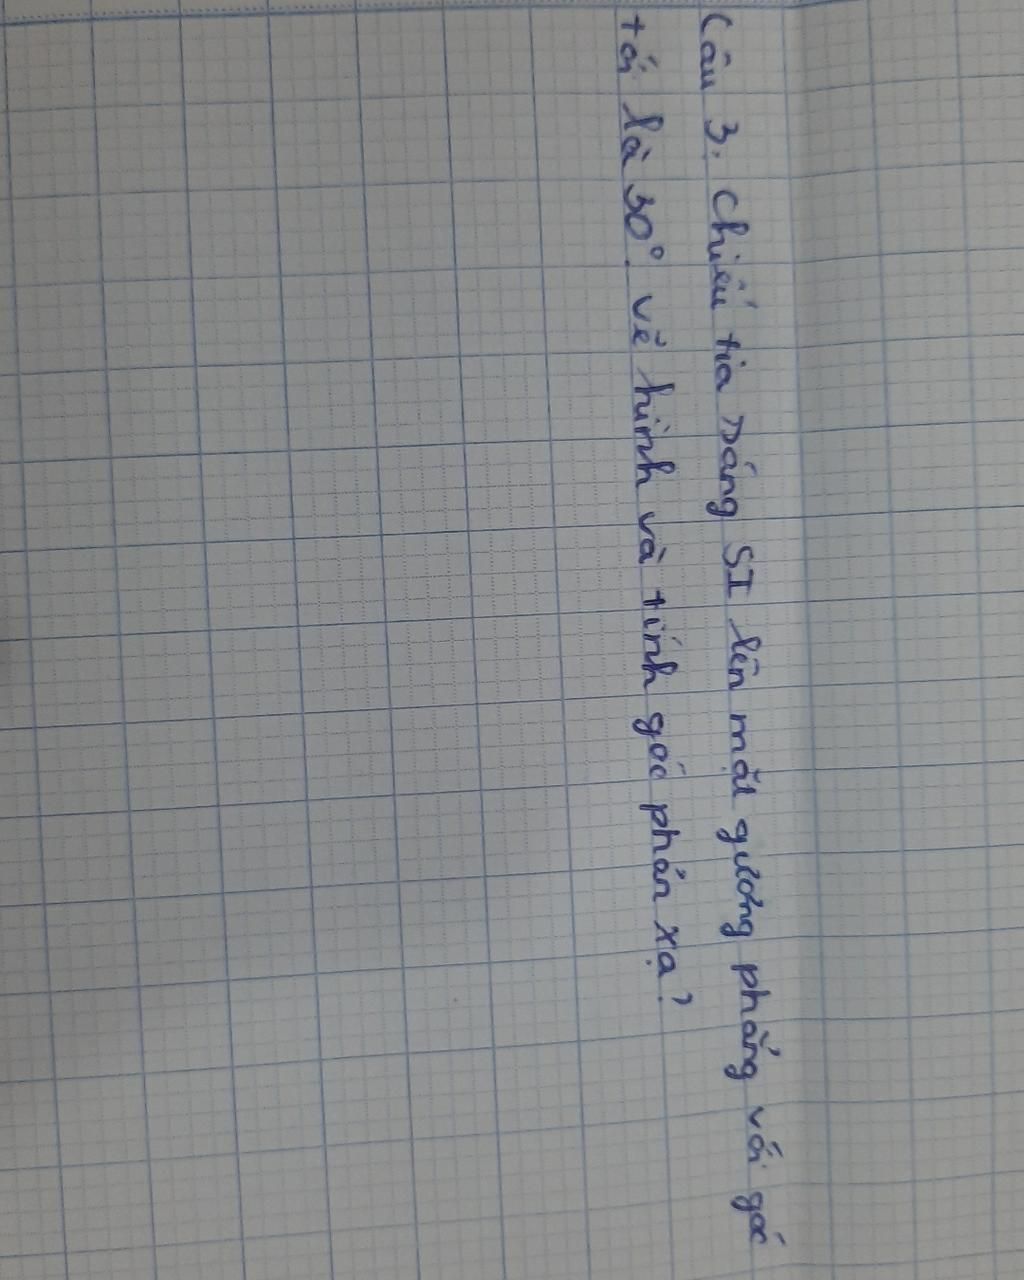 Câu 3: Chiếu tia sáng SI lên mặt gương phẳng với góc
tới là 30°. vẽ hình và tính góc phản xạ?